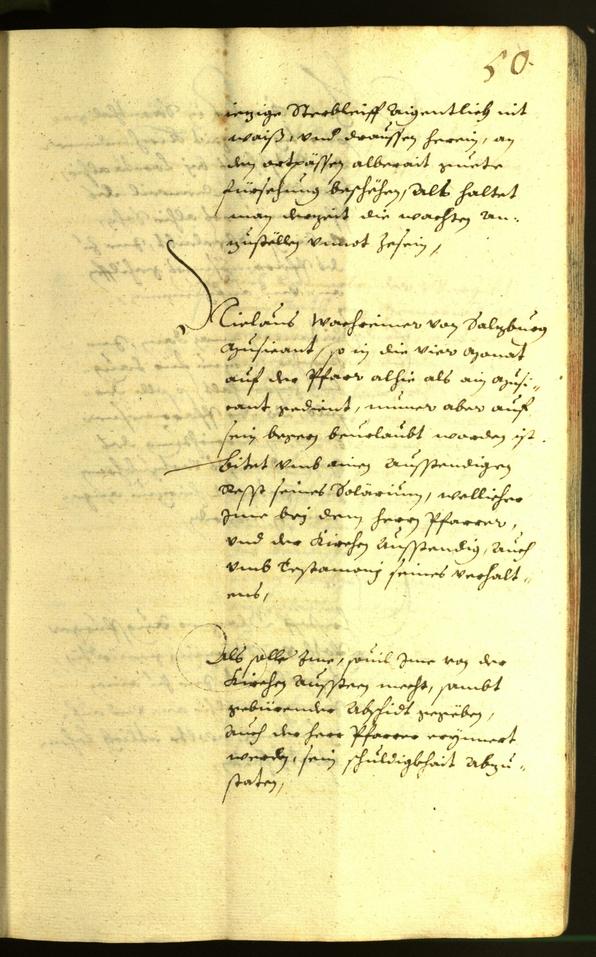 50.
iezige Sterbleiff aigentlich nit
waiß, vnd draussen herein, an
den ortpässen alberait guete
fürsehung beschehen, Alß haltet
man derzeit die wachten an-
zustellen vnnot zesein,
Niclaus Wacheimer von Salzburg
Musicant, so in die vier Monat
auf der Pfarr alhie als ain Musi-
cant gedient, nuner aber auf
sein begern beurlaubt worden ist.
bitet vmb ainen Ausstendigen
Resst seines Solarium, wellicher
Ime bej dem herrn Pfarrer,
vnd der Kirchen Ausstendig, Auch
vmb Testamonj seines verhalt-
ens,
Als solle Ime, souil Ime von der
Kirchen Aussteen mecht, sambt
gebürender Abschidt gegeben,
Auch der herr Pfarrer erynnert
werden, sein schuldigkhait Abzu-
staten,